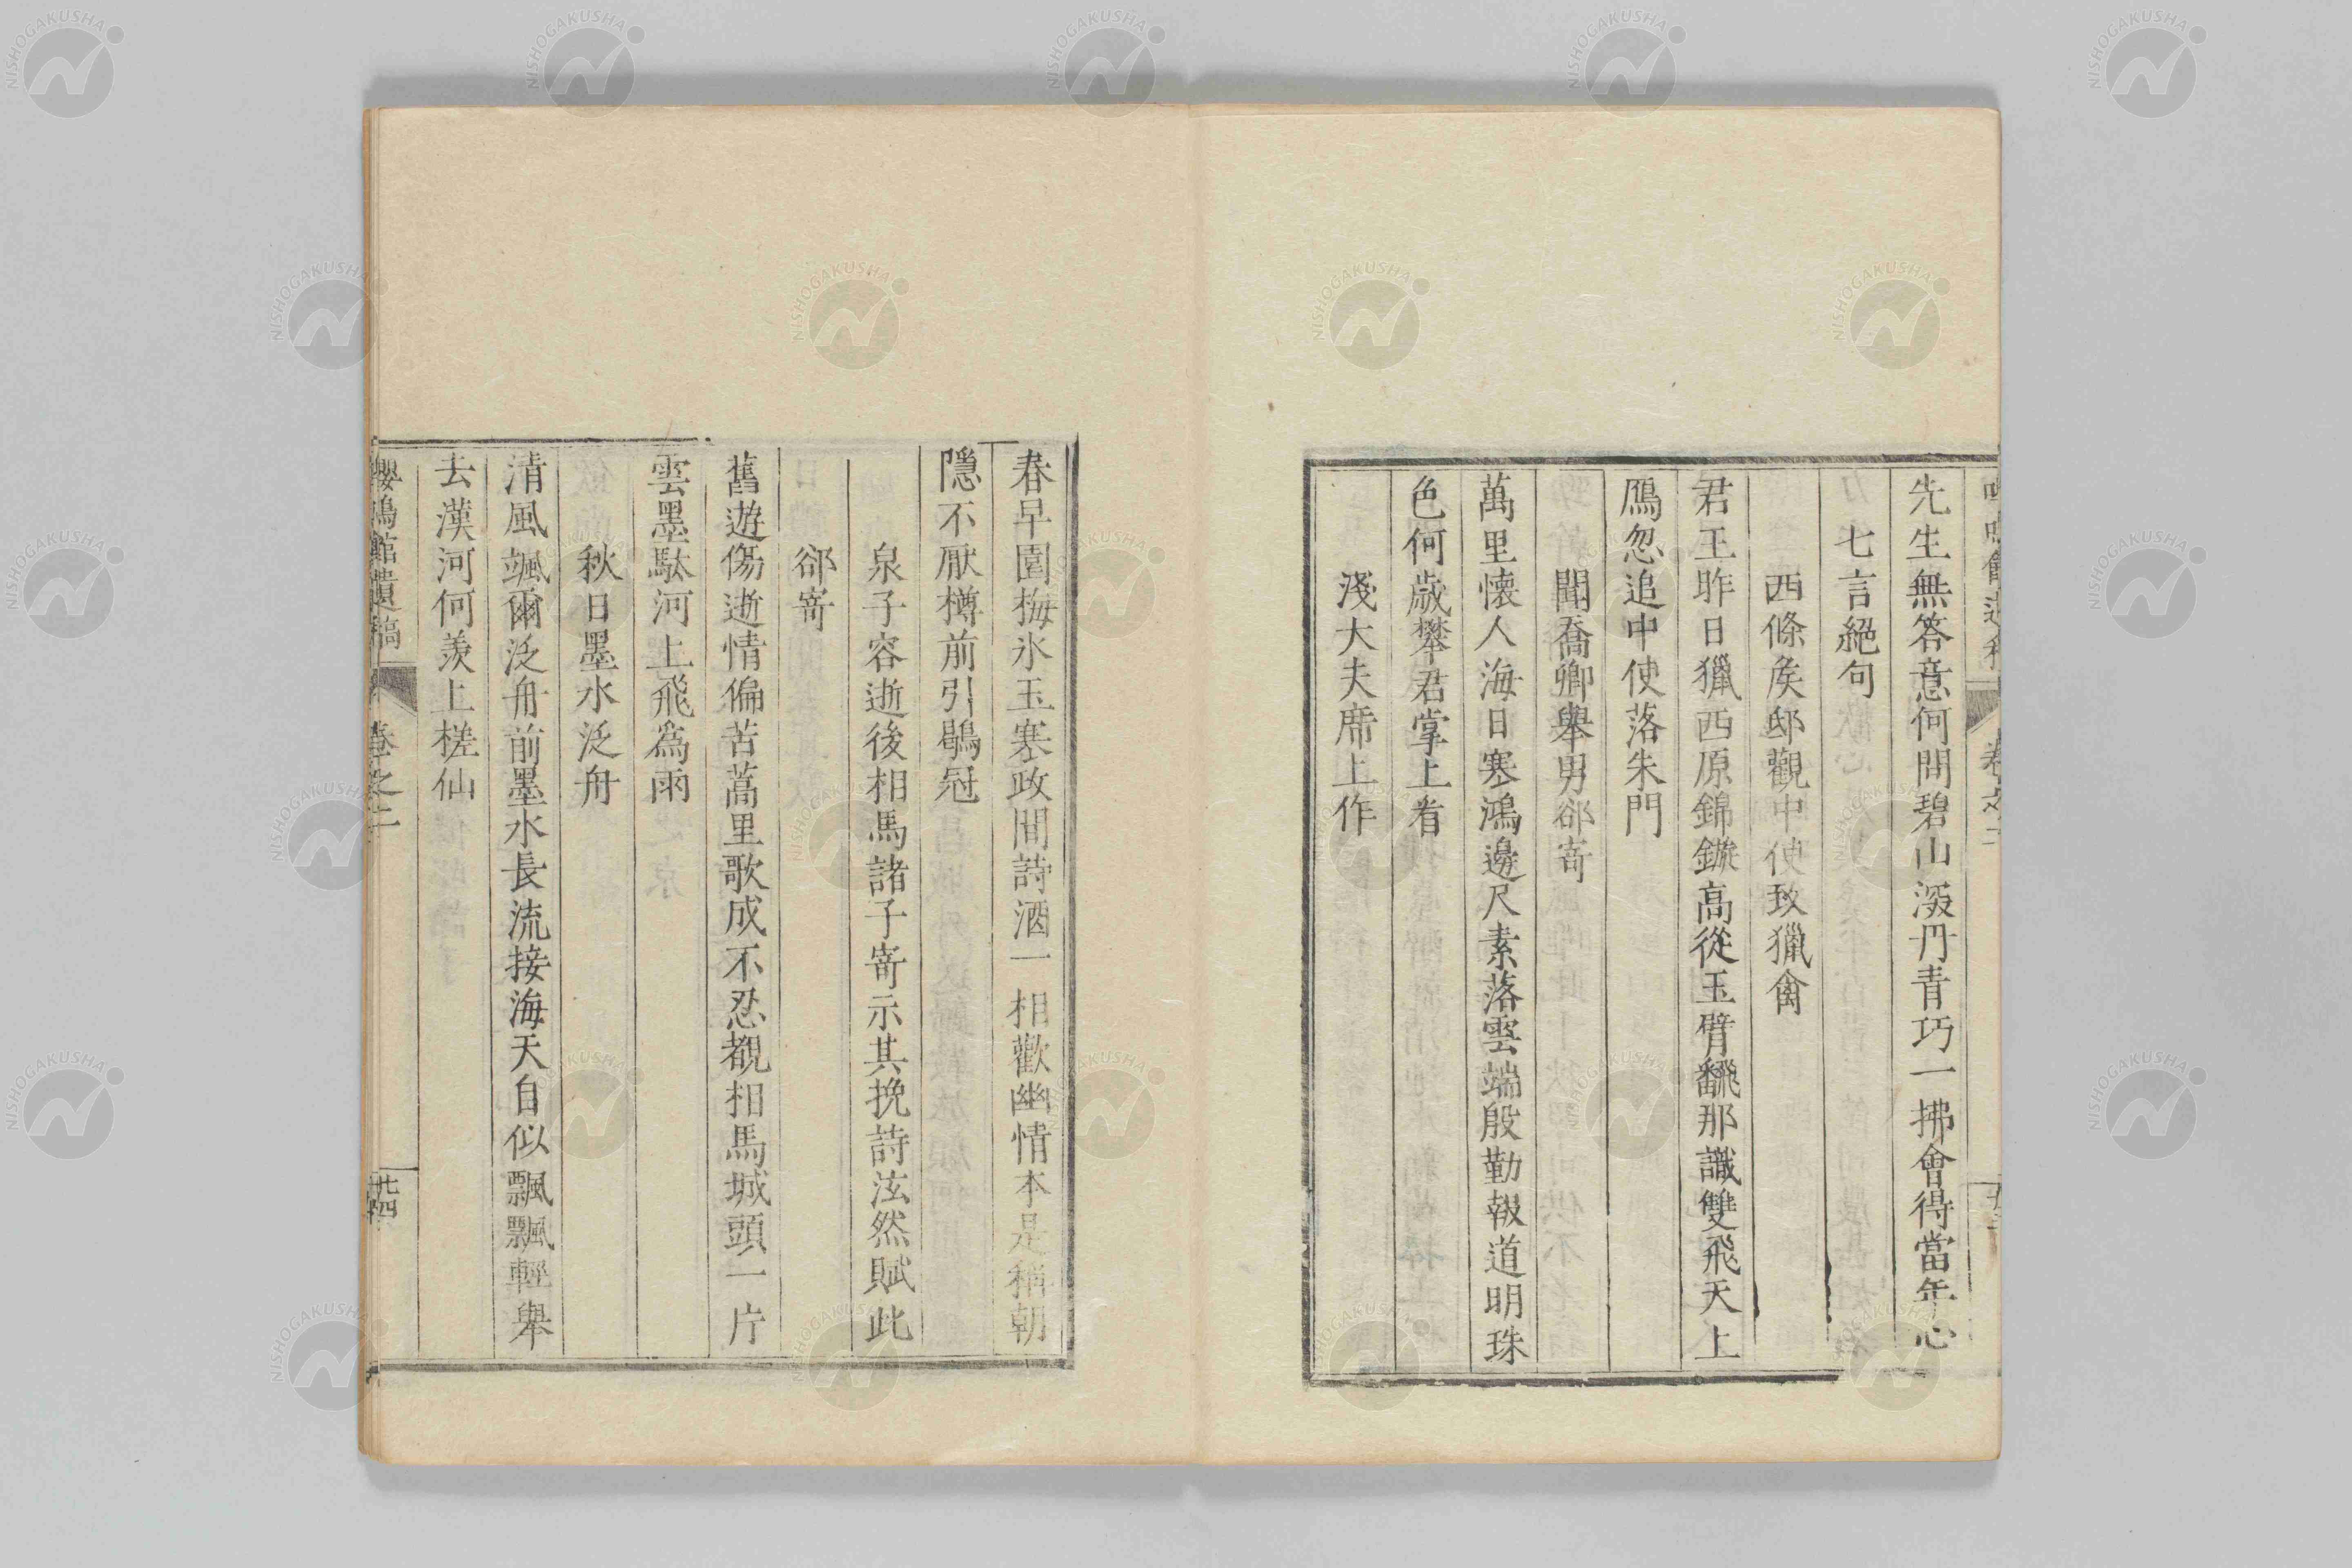 先生無答意何問碧山深丹青巧一拂會得當年心
七言絕句
西條矦邸觀中使致獵禽
君王昨日獵西原錦鏇高從玉臂飜那識雙飛天上
鴈忽追中使落朱門
聞喬卿舉男郤寄
萬里懷人海日寒鴻邊尺素落雲端殷勤報道明珠
色何歲攀君掌上看
淺大夫席上作
春早園梅氷玉寒政閒詩酒一相歡幽情本是稱朝
隱不厭樽前引鶡冠
泉子容逝後相馬諸子寄示其挽詩泫然賦此
郤寄
舊遊傷逝情偏苦蒿里歌成不忍覩相馬城頭一片
雲墨馱河上飛爲雨
秋日墨水泛舟
清風颯爾泛舟前墨水長流接海天自似飄飄輕舉
去漢河何羨上槎仙
嚶鳴館遺稿 卷之二 廿四
NISHOGAKUSHA